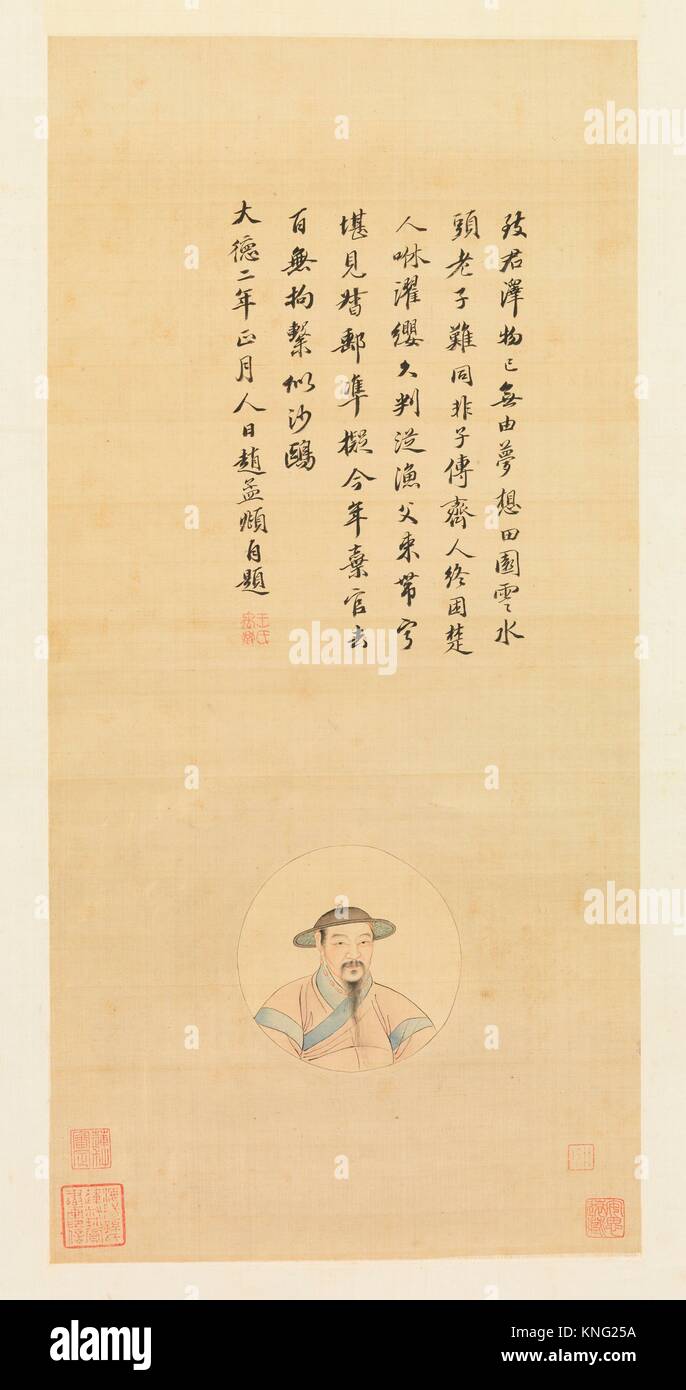 致君澤物已無由夢想田園雲水
頭老子難同非子傳齊人終困楚
人咻濯纓久判從漁父束帶寧
堪見督郵準擬今年棄官去
百無拘繫似沙鷗
大德二年正月人日趙孟頫自題
alamy
a
Image ID: KNG25A
www.alamy.com